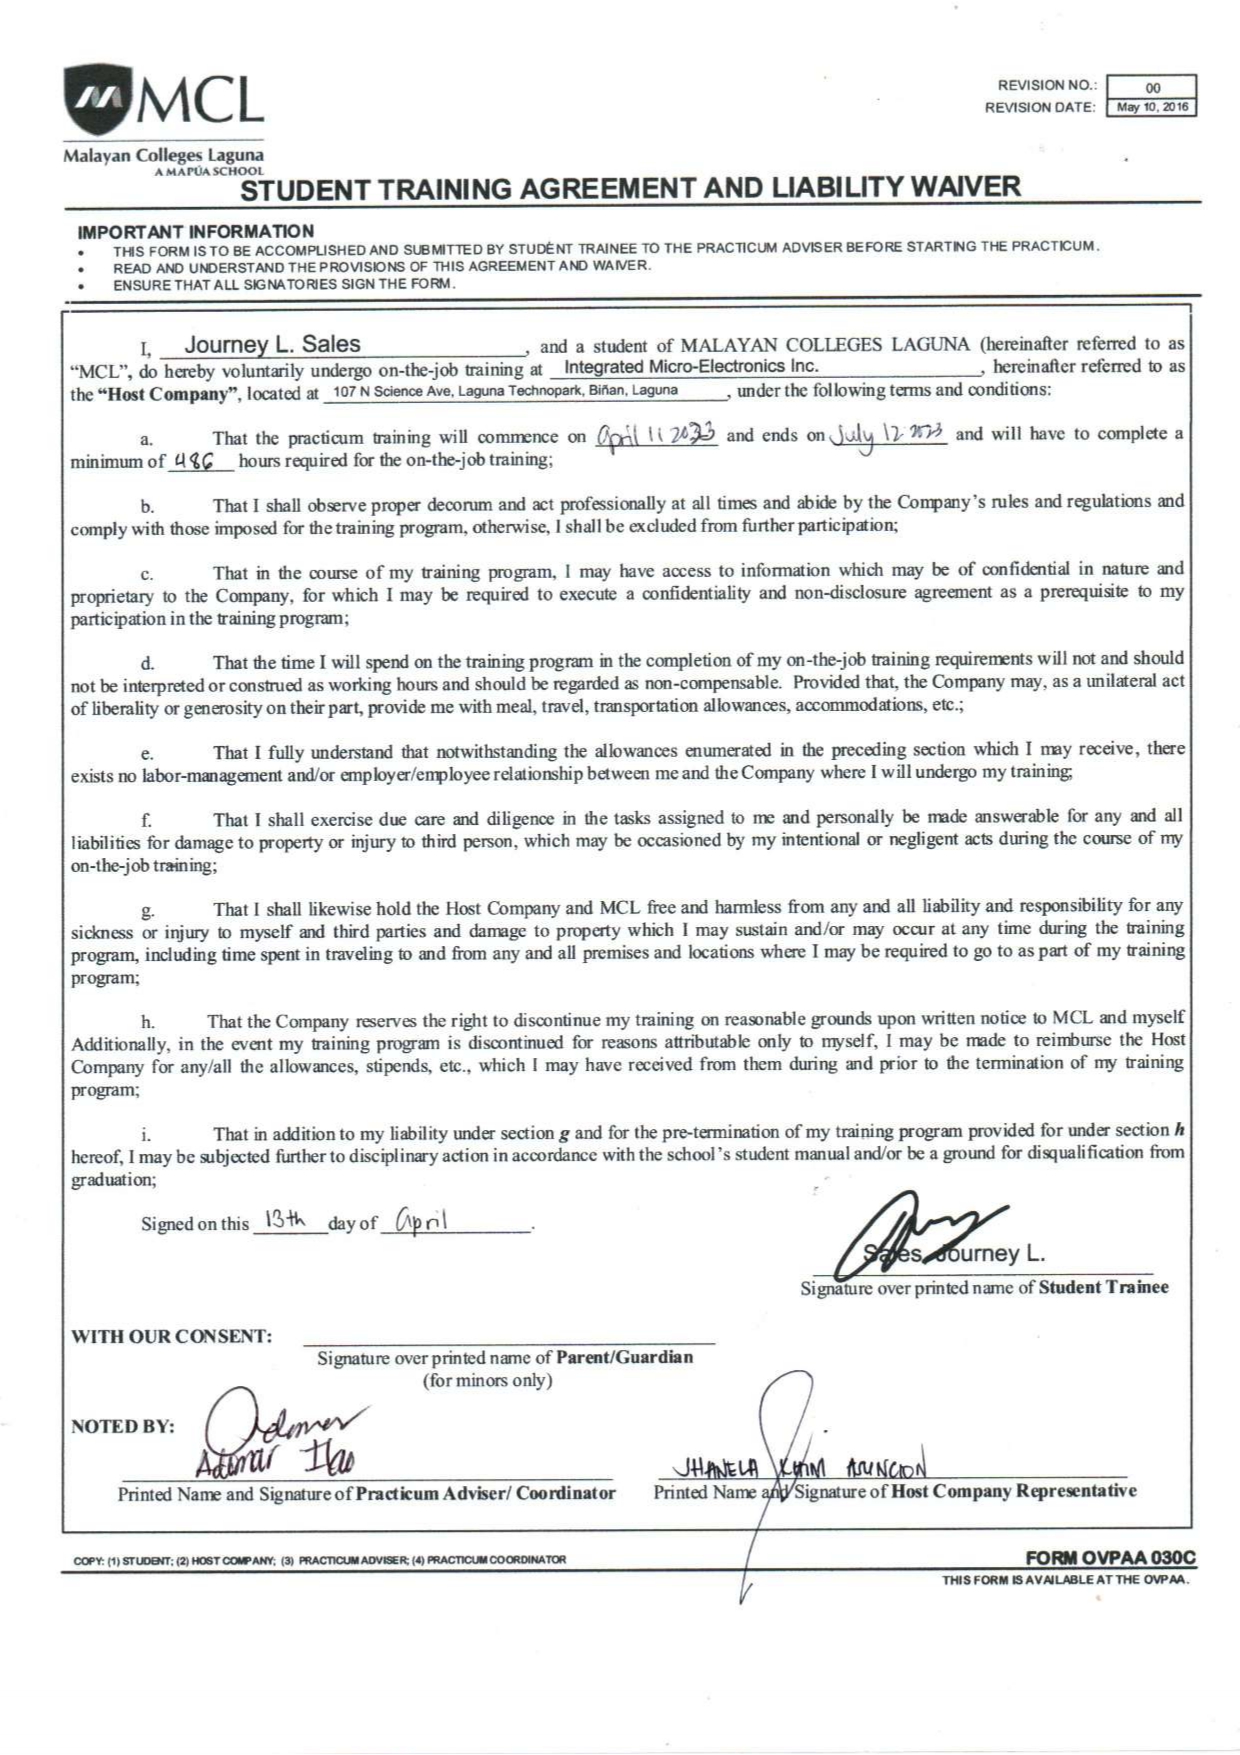 MCL
Malayan Colleges Laguna
A MAPÚA SCHOOL
REVISION NO.: 00
REVISION DATE: May 10, 2016
STUDENT TRAINING AGREEMENT AND LIABILITY WAIVER
IMPORTANT INFORMATION
• THIS FORM IS TO BE ACCOMPLISHED AND SUBMITTED BY STUDENT TRAINEE TO THE PRACTICUM ADVISER BEFORE STARTING THE PRACTICUM.
• READ AND UNDERSTAND THE PROVISIONS OF THIS AGREEMENT AND WAIVER.
• ENSURE THAT ALL SIGNATORIES SIGN THE FORM.
I, Journey L. Sales, and a student of MALAYAN COLLEGES LAGUNA (hereinafter referred to as
“MCL”, do hereby voluntarily undergo on-the-job training at Integrated Micro-Electronics Inc., hereinafter referred to as
the “Host Company”, located at 107 N Science Ave, Laguna Technopark, Biñan, Laguna, under the following terms and conditions:
a. That the practicum training will commence on April 11 2023 and ends on July 12 2023 and will have to complete a
minimum of 486 hours required for the on-the-job training;
b. That I shall observe proper decorum and act professionally at all times and abide by the Company’s rules and regulations and
comply with those imposed for the training program, otherwise, I shall be excluded from further participation;
c. That in the course of my training program, I may have access to information which may be of confidential in nature and
proprietary to the Company, for which I may be required to execute a confidentiality and non-disclosure agreement as a prerequisite to my
participation in the training program;
d. That the time I will spend on the training program in the completion of my on-the-job training requirements will not and should
not be interpreted or construed as working hours and should be regarded as non-compensable. Provided that, the Company may, as a unilateral act
of liberality or generosity on their part, provide me with meal, travel, transportation allowances, accommodations, etc.;
e. That I fully understand that notwithstanding the allowances enumerated in the preceding section which I may receive, there
exists no labor-management and/or employer/employee relationship between me and the Company where I will undergo my training;
f. That I shall exercise due care and diligence in the tasks assigned to me and personally be made answerable for any and all
liabilities for damage to property or injury to third person, which may be occasioned by my intentional or negligent acts during the course of my
on-the-job training;
g. That I shall likewise hold the Host Company and MCL free and harmless from any and all liability and responsibility for any
sickness or injury to myself and third parties and damage to property which I may sustain and/or may occur at any time during the training
program, including time spent in traveling to and from any and all premises and locations where I may be required to go to as part of my training
program;
h. That the Company reserves the right to discontinue my training on reasonable grounds upon written notice to MCL and myself
Additionally, in the event my training program is discontinued for reasons attributable only to myself, I may be made to reimburse the Host
Company for any/all the allowances, stipends, etc., which I may have received from them during and prior to the termination of my training
program;
i. That in addition to my liability under section g and for the pre-termination of my training program provided for under section h
hereof, I may be subjected further to disciplinary action in accordance with the school’s student manual and/or be a ground for disqualification from
graduation;
Signed on this 13th day of April.
Sales, Journey L.
Signature over printed name of Student Trainee
WITH OUR CONSENT:
Signature over printed name of Parent/Guardian
(for minors only)
NOTED BY:
Adomar Ilao
Printed Name and Signature of Practicum Adviser/ Coordinator
JHANELA KHIM ASUNCION
Printed Name and Signature of Host Company Representative
COPY: (1) STUDENT; (2) HOST COMPANY; (3) PRACTICUM ADVISER; (4) PRACTICUM COORDINATOR
FORM OVPAA 030C
THIS FORM IS AVAILABLE AT THE OVPAA.